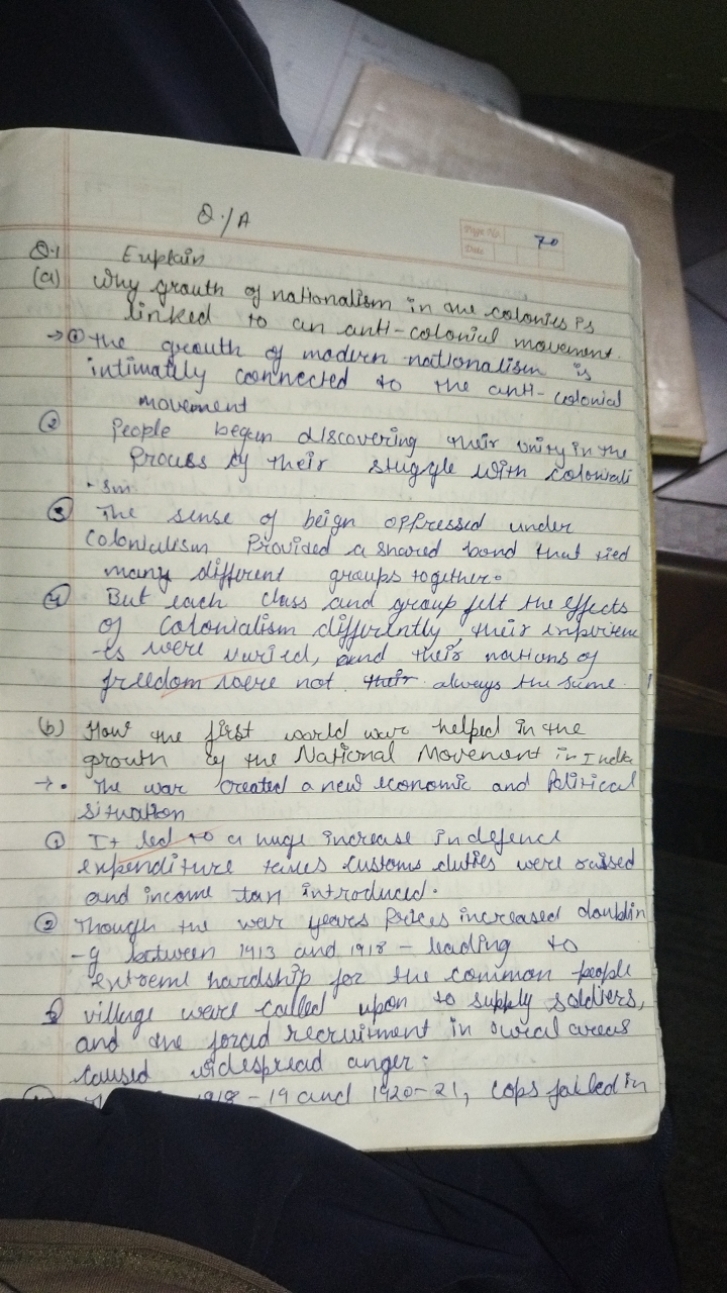 Q./A
Page No. 70
Date
Q.1 Explain
(a) Why growth of nationalism in the colonies is
linked to an anti-colonial movement.
→① the growth of modern nationalism is
intimatily connected to the anti-colonial
movement
② People began discovering their unity in the
Process of their stuggle with coloniali
-sm
③ The sense of beign oppressed under
Colonialism Provided a shared bond that tied
many different groups together.
④ But each class and group felt the effects
of colonialism differently, their experienc
-es were varied, and their nations of
freedom were not their always the same.
(b) How the first world war helped in the
growth of the National Movement in India
→. The war created a new economic and Political
situation
① It led to a huge increase in defence
expenditure taxes customs duties were raised
and income tax introduced.
② Though the war years Prices increased doublin
-g between 1913 and 1918 - leading to
extreme hardship for the common people
③ village were called upon to supply soldiers,
and the forced recruitment in rural areas
caused widespread anger.
1918-19 and 1920-21, cops failed in